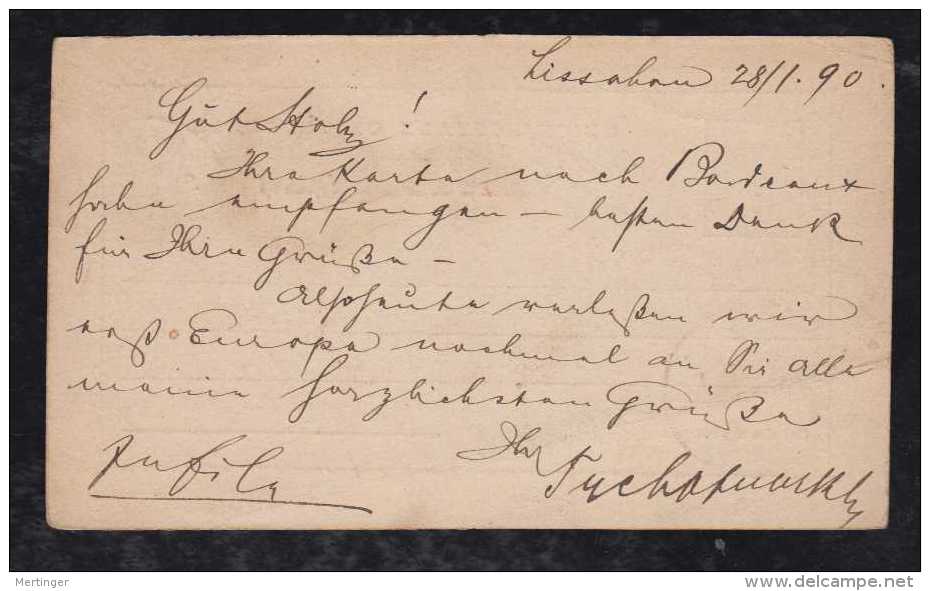 Lissabon 28/1. 90.
Gut Holz!
Ihre Karte nach Bordeaux
habe empfangen – besten Dank
für Ihre Grüße –
Also heute verlaßen wir
erst Europa nochmal an Sie alle
meine herzlichsten Grüße
Ihr
In Eile
Mertinger
www.delcampe.net